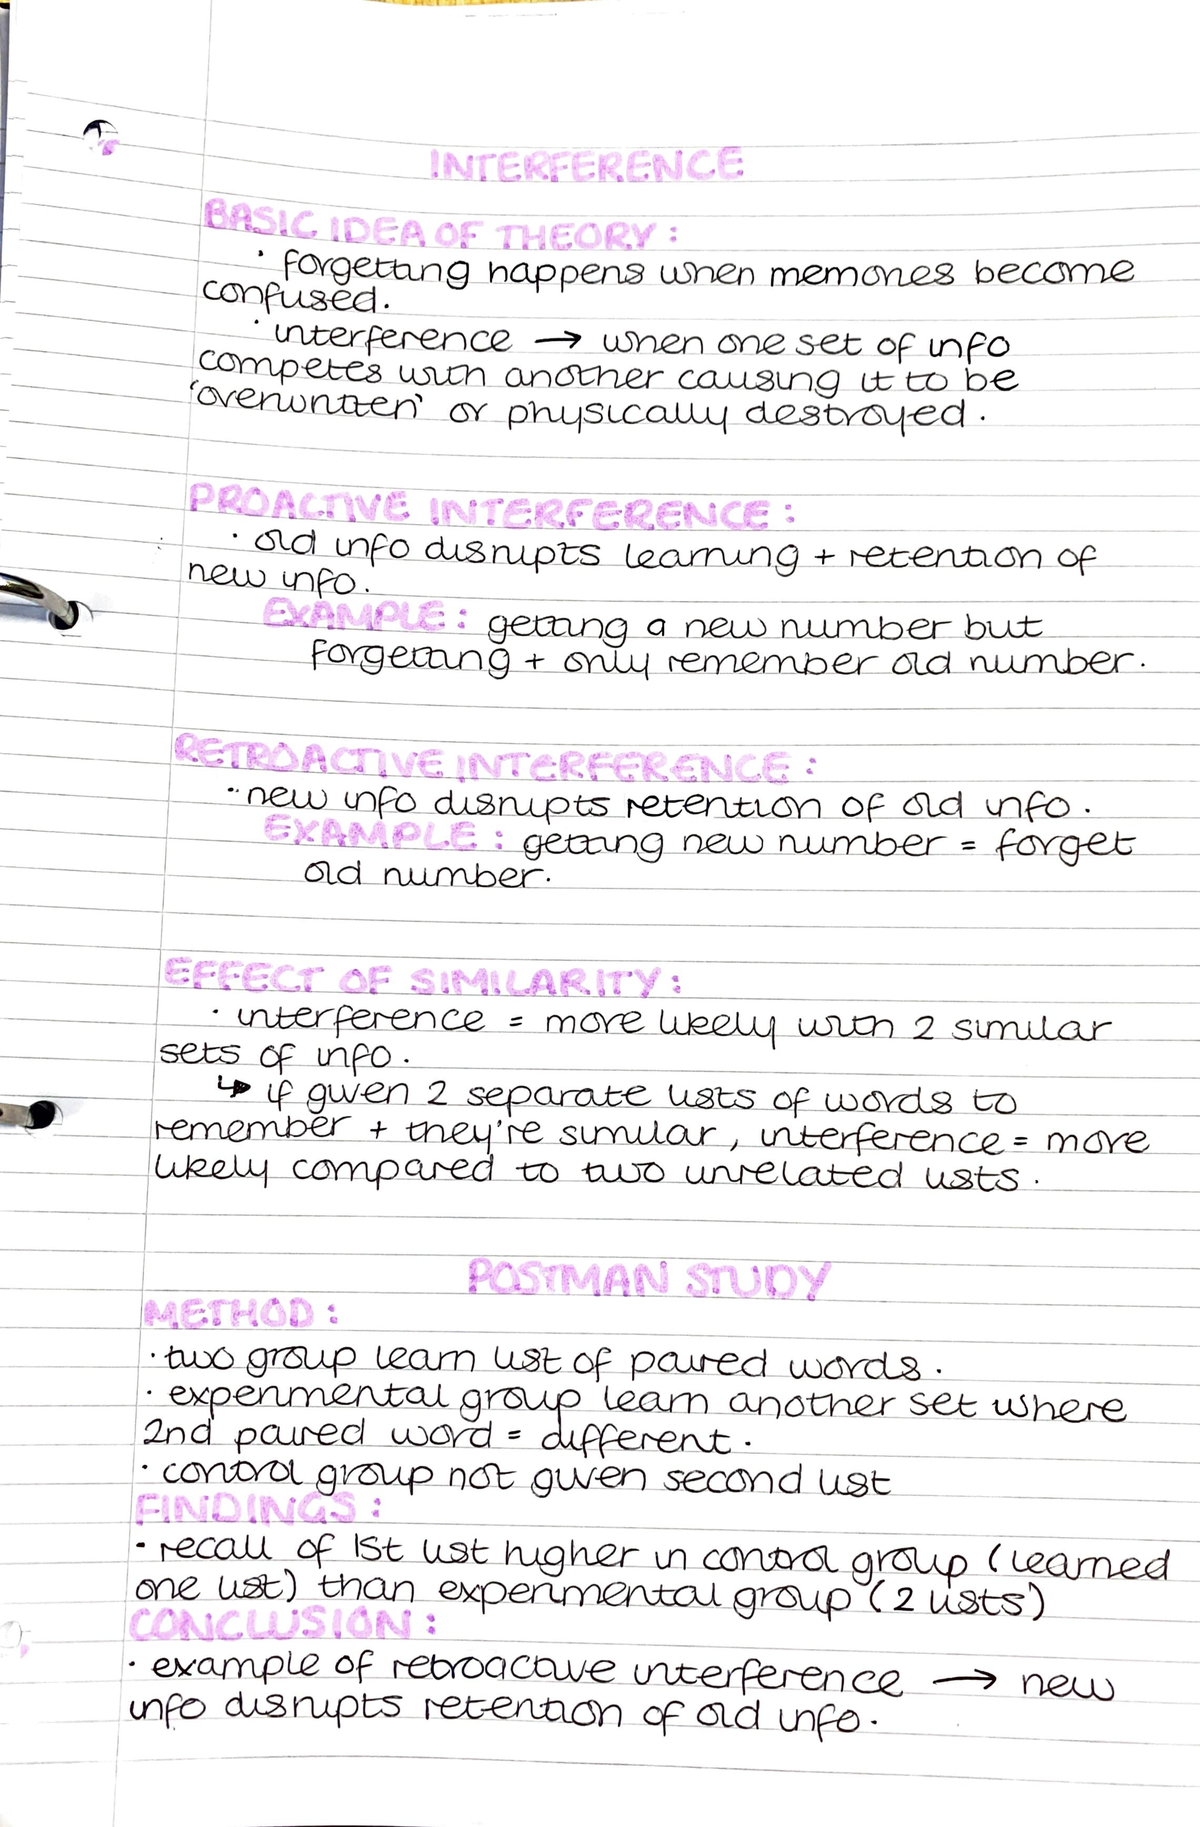 INTERFERENCE
BASIC IDEA OF THEORY:
· forgetting happens when memories become
confused.
· interference → when one set of info
competes with another causing it to be
'overwritten' or physically destroyed.
PROACTIVE INTERFERENCE:
· old info disrupts learning + retention of
new info.
EXAMPLE: getting a new number but
forgetting + only remember old number.
RETROACTIVE INTERFERENCE:
· new info disrupts retention of old info.
EXAMPLE: getting new number = forget
old number.
EFFECT OF SIMILARITY:
· interference = more likely with 2 similar
sets of info.
↳ if given 2 separate lists of words to
remember + they're similar, interference = more
likely compared to two unrelated lists.
POSTMAN STUDY
METHOD:
· two group learn list of paired words.
· experimental group learn another set where
2nd paired word = different.
· control group not given second list
FINDINGS:
· recall of 1st list higher in control group (learned
one list) than experimental group (2 lists)
CONCLUSION:
· example of retroactive interference → new
info disrupts retention of old info.